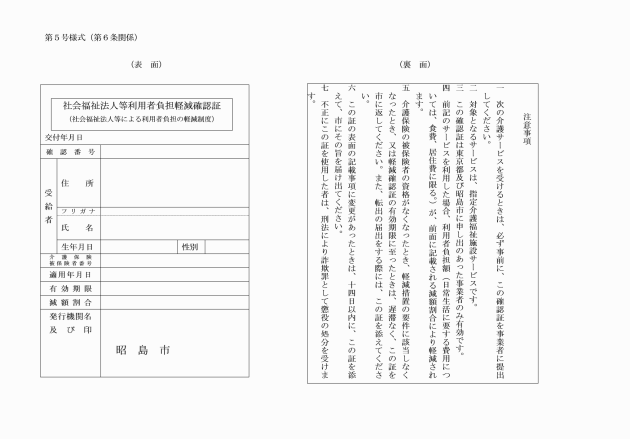 第５号様式（第６条関係）
（表　面）
社会福祉法人等利用者負担軽減確認証
（社会福祉法人等による利用者負担の軽減制度）
交付年月日
確認番号
受給者
住　所
フリガナ
氏　名
生年月日
性別
介護保険
被保険者番号
適用年月日
有効期限
減額割合
発行機関名
及び印
昭島市
（裏　面）
注意事項
一　次の介護サービスを受けるときは、必ず事前に、この確認証を事業者に提出
してください。
二　対象となるサービスは、指定介護福祉施設サービスです。
三　この確認証は東京都及び昭島市に申し出のあった事業者のみ有効です。
四　前記のサービスを利用した場合、利用者負担額（日常生活に要する費用につ
いては、食費、居住費に限る。）が、前面に記載される減額割合により軽減され
ます。
五　介護保険の被保険者の資格がなくなったとき、軽減措置の要件に該当しなく
なったとき、又は軽減確認証の有効期限に至ったときは、遅滞なく、この証を
市に返してください。また、転出の届出をする際には、この証を添えてくださ
い。
六　この証の表面の記載事項に変更があったときは、十四日以内に、この証を添
えて、市にその旨を届け出てください。
七　不正にこの証を使用した者は、刑法により詐欺罪として懲役の処分を受けま
す。